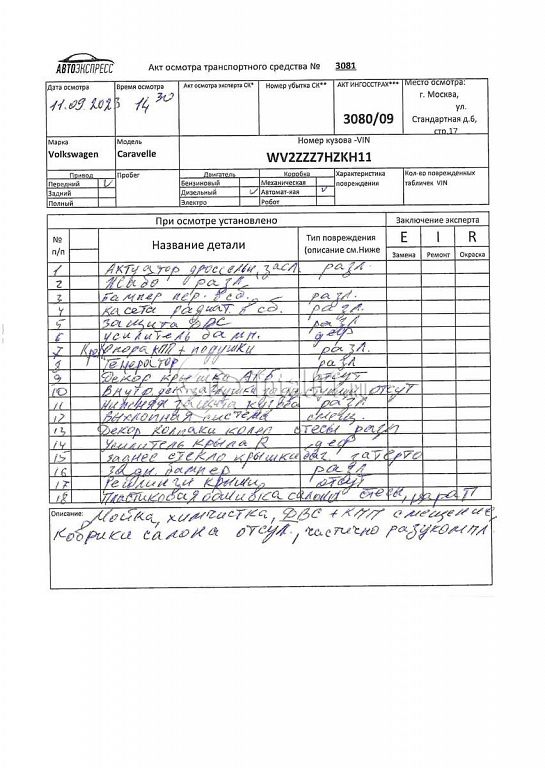 АВТОЭКСПРЕСС
Акт осмотра транспортного средства № 3081
Дата осмотра Время осмотра Акт осмотра эксперта СК* Номер убытка СК** АКТ ИНГОССТРАХ*** Место осмотра:
11.09.2023 14 30 3080/09 г. Москва,
ул.
Стандартная д.6,
стр.17
Марка Модель Номер кузова -VIN
Volkswagen Caravelle WV2ZZZ7HZKH11
Привод Пробег Двигатель Коробка Характеристика повреждения Кол-во поврежденных табличек VIN
Передний V Бензиновый Механическая
Задний Дизельный V Автомат-кая V
Полный Электро Робот
При осмотре установлено Заключение эксперта
№ п/п Название детали Тип повреждения (описание см.Ниже E I R
Замена Ремонт Окраска
1 Актуатор дроссельн. засл. разл.
2 разл
3 Бампер пер. в сб. разл.
4 касета радиат. в сб. разл.
5 защита ДВС разл
6 усилитель бамп. деф
7 Опора КПП + подушки разл.
8 Генератор разл
9 Декор крышка АКБ отсут
10 отсут
11 Нижняя защита кузова разл
12 Выхлопная система смещ.
13 Декор колпаки колёс разл
14 Усилитель крыла R деф
15 заднее стекло крышки баг затерто
16 задн. бампер разл
17 Рейлинги крыши отсут
18 Пластиковая обшивка салона
Описание: Мойка, химчистка, ДВС + КПП смещение,
Коврики салона отсут, частично разукомпл.